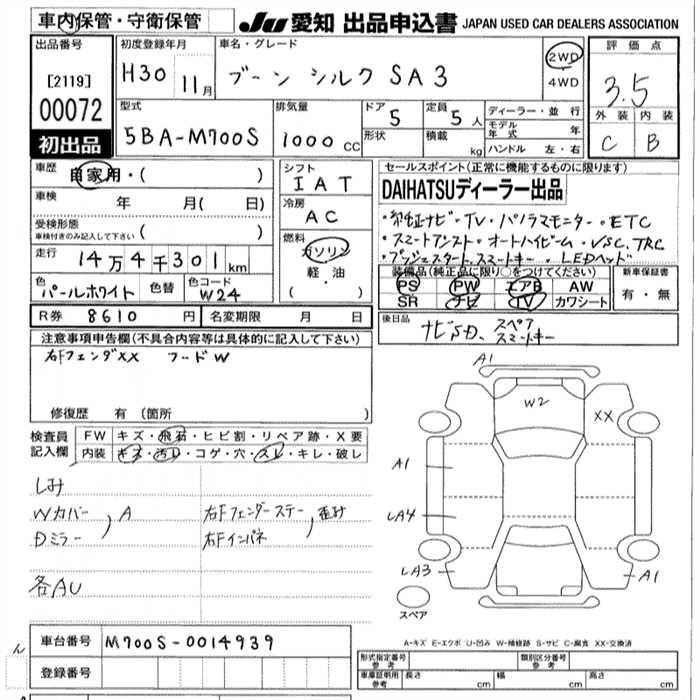 車内保管・守衛保管
JU 愛知 出品申込書 JAPAN USED CAR DEALERS ASSOCIATION
出品番号
[2119]
00072
初出品
初度登録年月
H30 11月
車名・グレード
ブーン シルク SA3
2WD
4WD
評価点
3.5
外装 内装
C B
型式
5BA-M700S
排気量
1000 CC
ドア
5
形状
定員
5人
積載
kg
ディーラー・並行
モデル年式 年
ハンドル 左・右
車歴
自家用・( )
車検
年 月( 日)
受検形態
車検付きのみ記入して下さい ( )
走行
14万4千301km
色
パールホワイト
色替
色コード
W24
シフト
IAT
冷房
AC
燃料
ガソリン
軽油
( ・ )
セールスポイント(正常に機能するものに限ります)
DAIHATSUディーラー出品
・純正ナビ・TV・パノラマモニター・ETC
・スマートアシスト・オートハイビーム・VSC,TRC
・プッシュスタート,スマートキー・LEDヘッド
装備品(純正品に限り○をつけてください)
PS PW エアB AW
SR ナビ TV カワシート
新車保証書
有・無
R券 8610円 名変期限 月 日
後日品
ナビSD、スペア
スマートキー
注意事項申告欄(不具合内容等は具体的に記入して下さい)
右FフェンダXX フードW
修復歴 有 (箇所 )
検査員
記入欄
FW キズ・飛石・ヒビ割・リペア跡・X要
内装 キズ・汚レ・コゲ・穴・スレ・キレ・破レ
しみ
Wカバー
Dミラー , A
右Fフェンダーステー
右Fインパネ , 歪み
各AU
A1
W2
XX
A1
LA4
LA3
A1
スペア
A-キズ E-エクボ U-凹み W-補修跡 S-サビ C-腐食 XX-交換済
ん
車台番号 M700S-0014939
登録番号
形式指定番号
参考
類別区分番号
参考
車庫証明用
参考
長さ cm 幅 cm 高さ cm